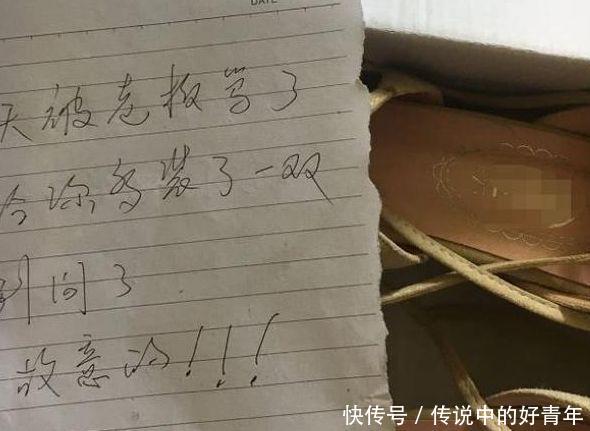 DATE
天被老板骂了
给你多装了一双
别问了
故意的!!!
快传号/传说中的好青年